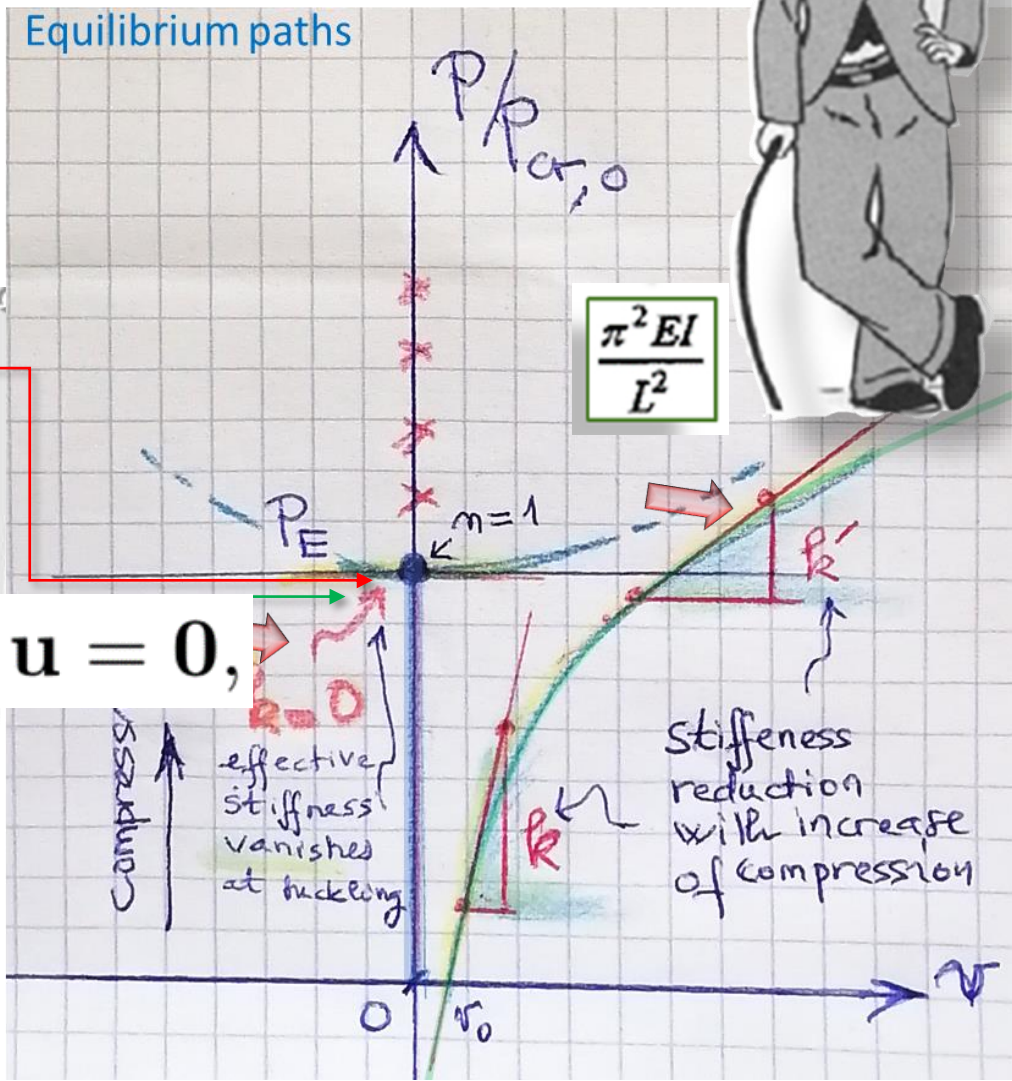 Equilibrium paths
P/Pcr,0
π²EI
L²
n=1
PE
k'
u = 0,
k=0
effective
stiffness
vanishes
at buckling
Compress
k
Stiffeness
reduction
with increase
of compression
v
0
v0